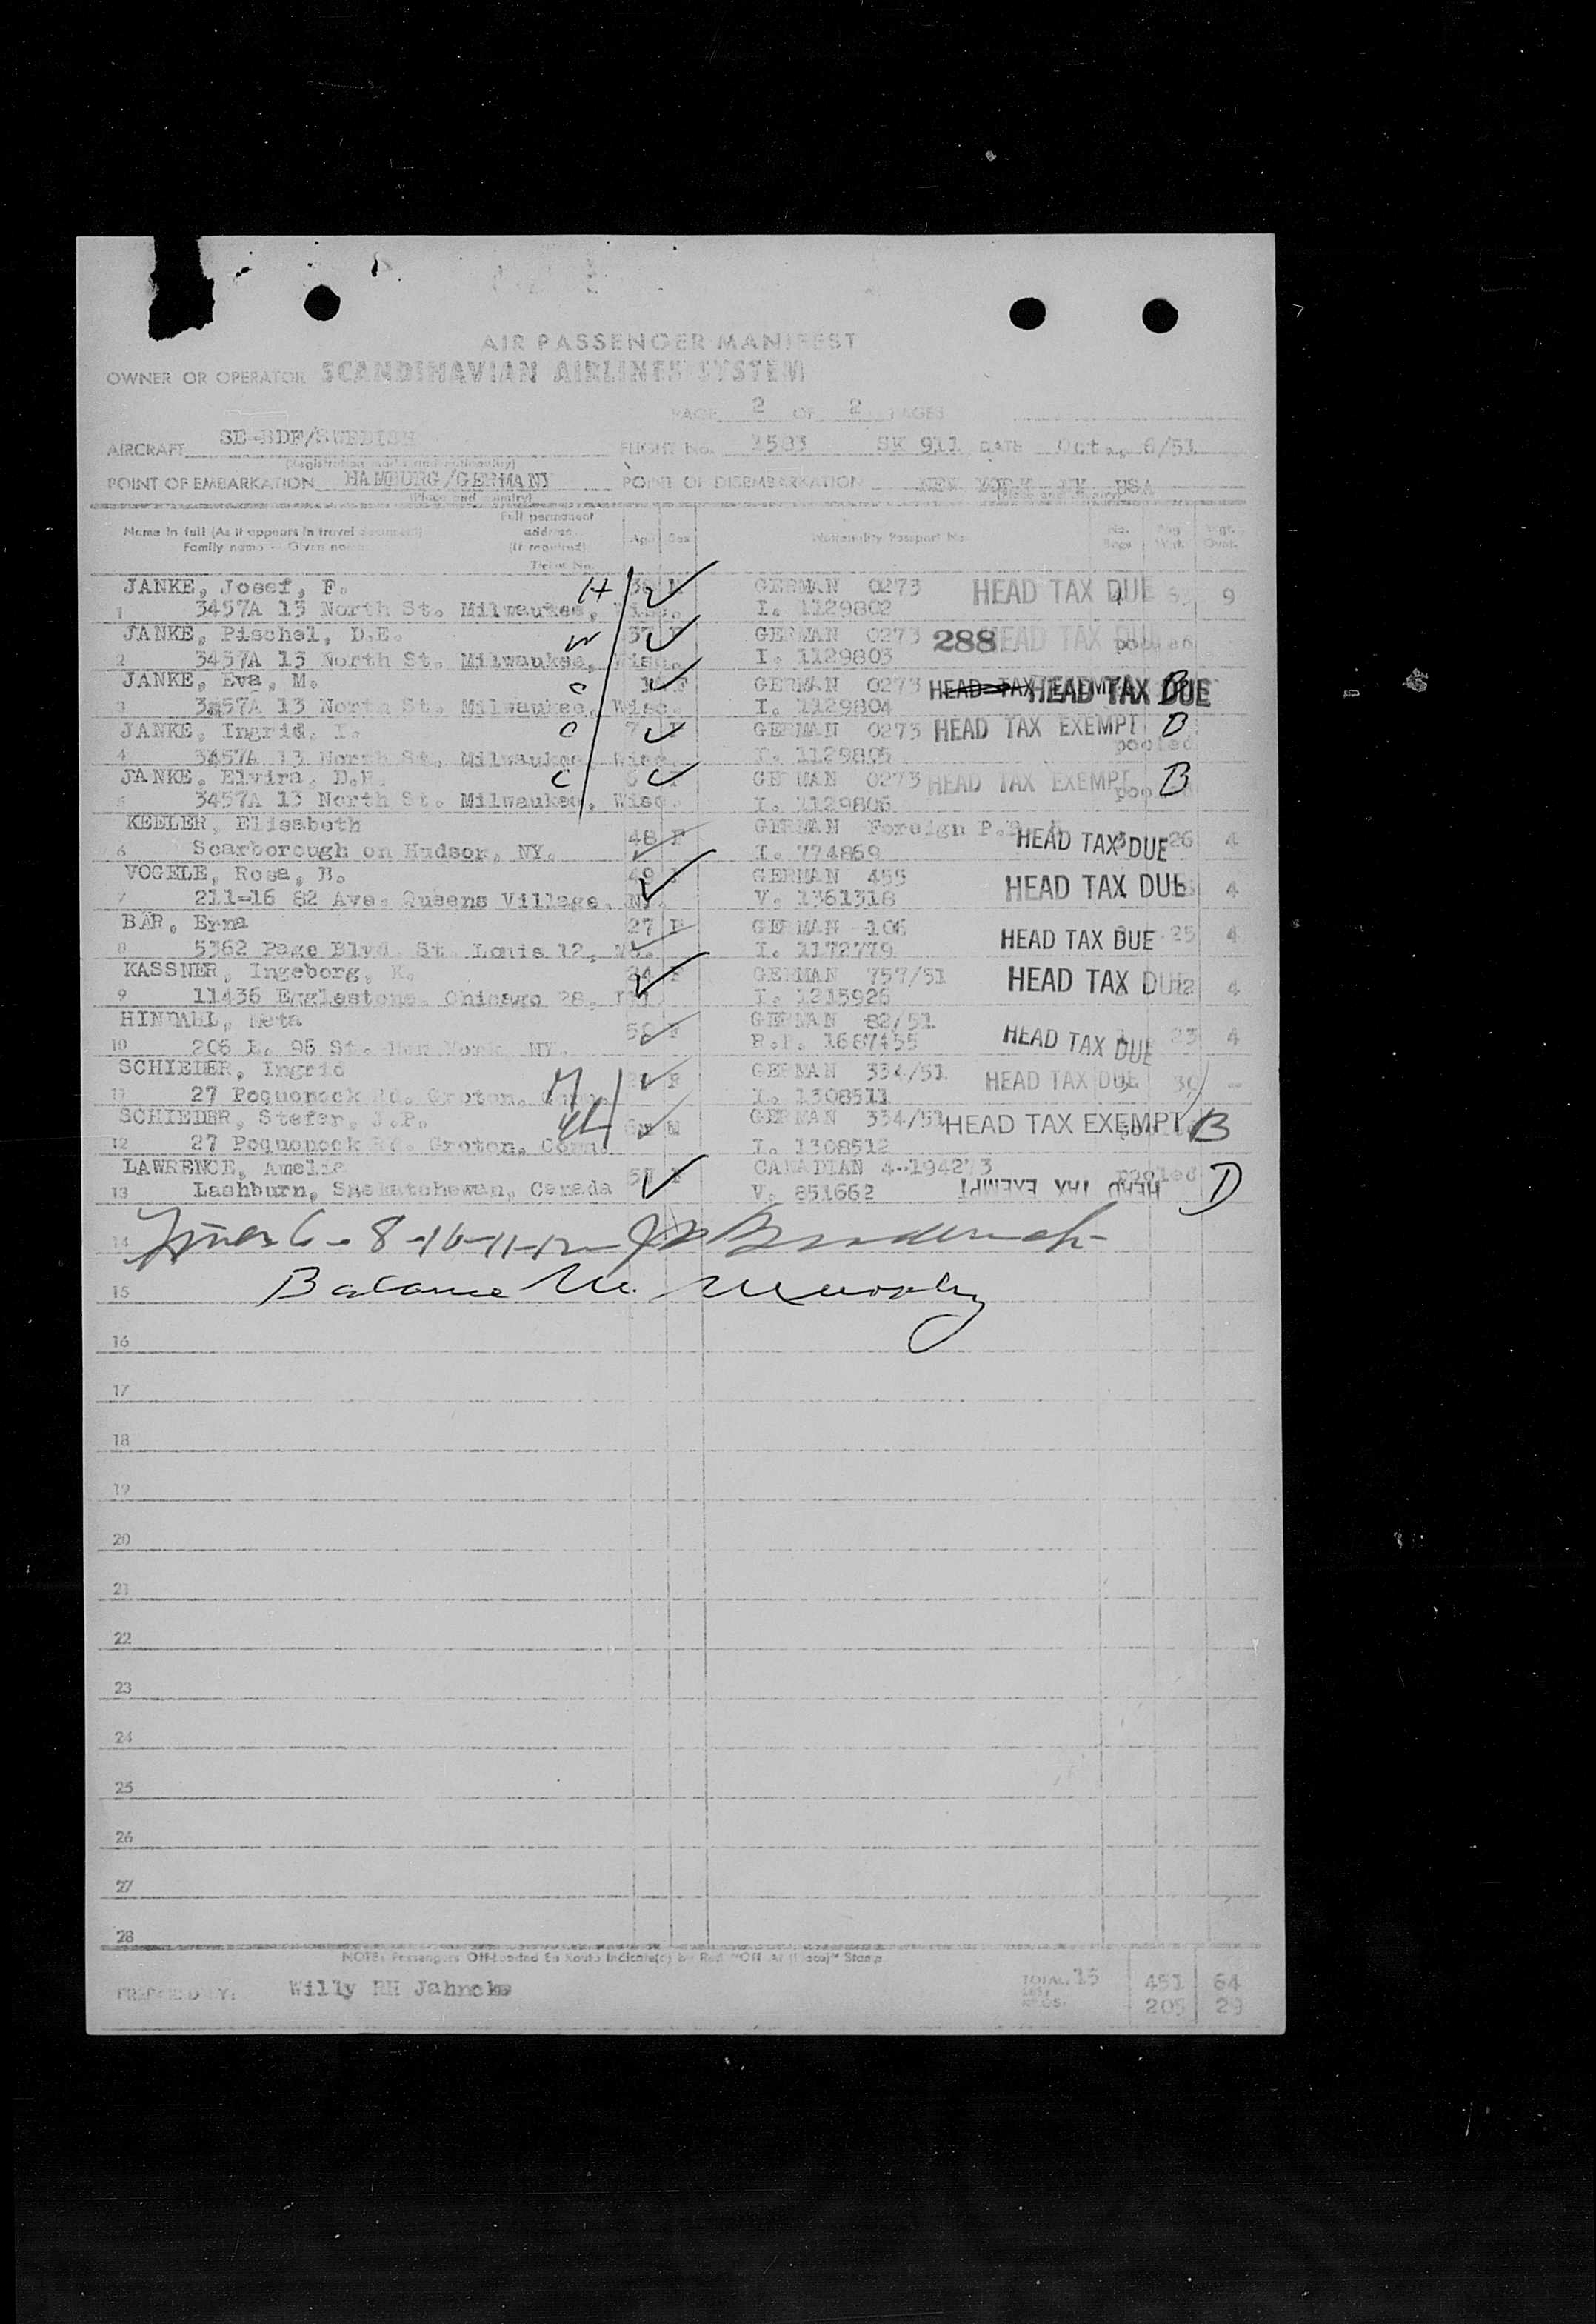 AIR PASSENGER MANIFEST
OWNER OR OPERATOR SCANDINAVIAN AIRLINES SYSTEM
PAGE 2 OF 2 PAGES
AIRCRAFT SE-BDF/SWEDISH FLIGHT No. 2503 SK 911 DATE Oct., 6/51
(Registration marks and nationality)
POINT OF EMBARKATION HAMBURG/GERMANY POINT OF DISEMBARKATION NEW YORK NY USA
(Place and country) (Place and country)
Name in full (As it appears in travel document) Full permanent address (If required) Age Sex Nationality Passport No. No. Bags
Family name - Given name
JANKE, Josef, F. H M GERMAN 0273 HEAD TAX DUE 9
1 3457A 13 North St. Milwaukee, Wisc. I. 1129802
JANKE, Pischel, D.E. W 37 F GERMAN 0273 288 HEAD TAX DUE pooled
2 3457A 13 North St. Milwaukee, Wisc. I. 1129803
JANKE, Eva, M. C F GERMAN 0273 HEAD TAX DUE
3 3457A 13 North St. Milwaukee, Wisc. I. 1129804
JANKE, Ingrid, I. C 7 F GERMAN 0273 HEAD TAX EXEMPT B
4 3457A 13 North St. Milwaukee, Wisc. I. 1129805 pooled
JANKE, Elvira, D.R. C GERMAN 0273 HEAD TAX EXEMPT B
5 3457A 13 North St. Milwaukee, Wisc. I. 1129806
KEELER, Elisabeth 48 F GERMAN Foreign HEAD TAX DUE 26 4
6 Scarborough on Hudson, NY. I. 774869
VOGELE, Rosa, B. 49 F GERMAN 455 HEAD TAX DUE 4
7 211-16 82 Ave. Queens Village, NY. V. 1361318
BÄR, Erna 27 F GERMAN 106 HEAD TAX DUE 25 4
8 5362 Page Blvd. St. Louis 12, Mo. I. 1172779
KASSNER, Ingeborg, K. 24 F GERMAN 757/51 HEAD TAX DUE 4
9 11436 Egglestone, Chicago 28, Ill. I. 1215926
HINDAHL, Meta F GERMAN 82/51 HEAD TAX DUE 23 4
10 206 E. 96 St. New York NY. R.P. 1687455
SCHIEDER, Ingrid M F GERMAN 334/51 HEAD TAX DUE
11 27 Poquonock Rd. Groton, Conn. I. 1308511
SCHIEDER, Stefer, J.P. M GERMAN 334/51 HEAD TAX EXEMPT B
12 27 Poquonock Rd. Groton, Conn. I. 1308512
LAWRENCE, Amelia 57 F CANADIAN 4-194273 pooled D
13 Lashburn, Saskatchewan, Canada V. 851662 HEAD TAX EXEMPT
14 Lines 6-8-10-11-12
15 Balance M. Murphy
16
17
18
19
20
21
22
23
24
25
26
27
28
NOTE: Passengers Off-Loaded En Route Indicate(d) by Red "Off At (Place)" Stamp
PREPARED BY: Willy RH Jahncke TOTAL 451 64
LBS.
KILOS. 205 29